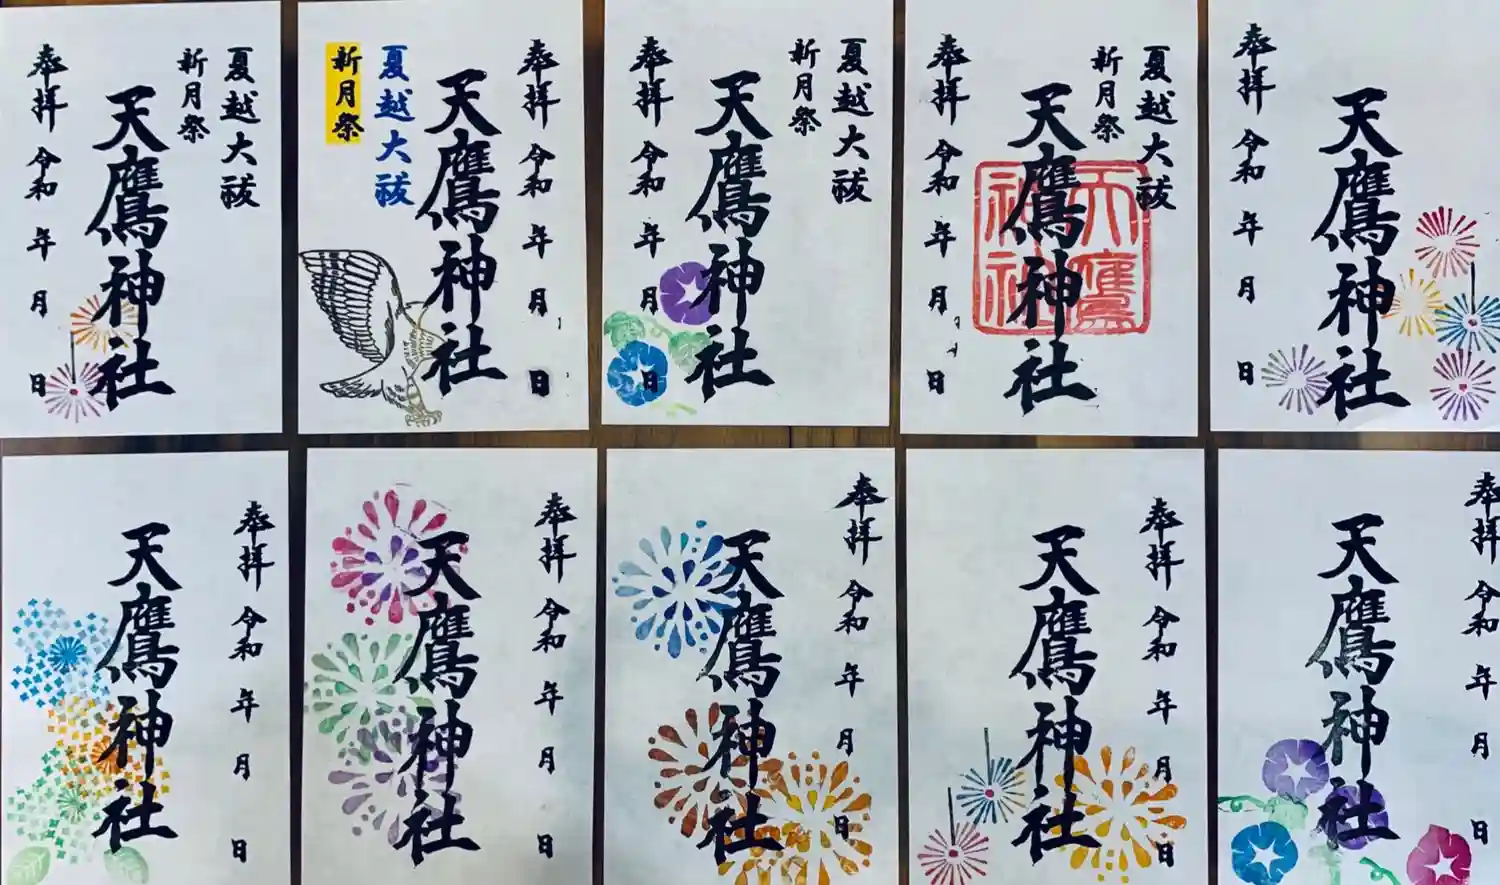 夏越大祓
新月祭
天鷹神社
奉拝 令和 年 月 日
奉拝 令和 年 月 日
天鷹神社
夏越大祓
新月祭
夏越大祓
新月祭
天鷹神社
奉拝 令和 年 月 日
夏越大祓
新月祭
天鷹神社
天鷹
神社
奉拝 令和 年 月 日
天鷹神社
奉拝 令和 年 月 日
奉拝 令和 年 月 日
天鷹神社
奉拝 令和 年 月 日
天鷹神社
奉拝 令和 年 月 日
天鷹神社
奉拝 令和 年 月 日
天鷹神社
奉拝 令和 年 月 日
天鷹神社